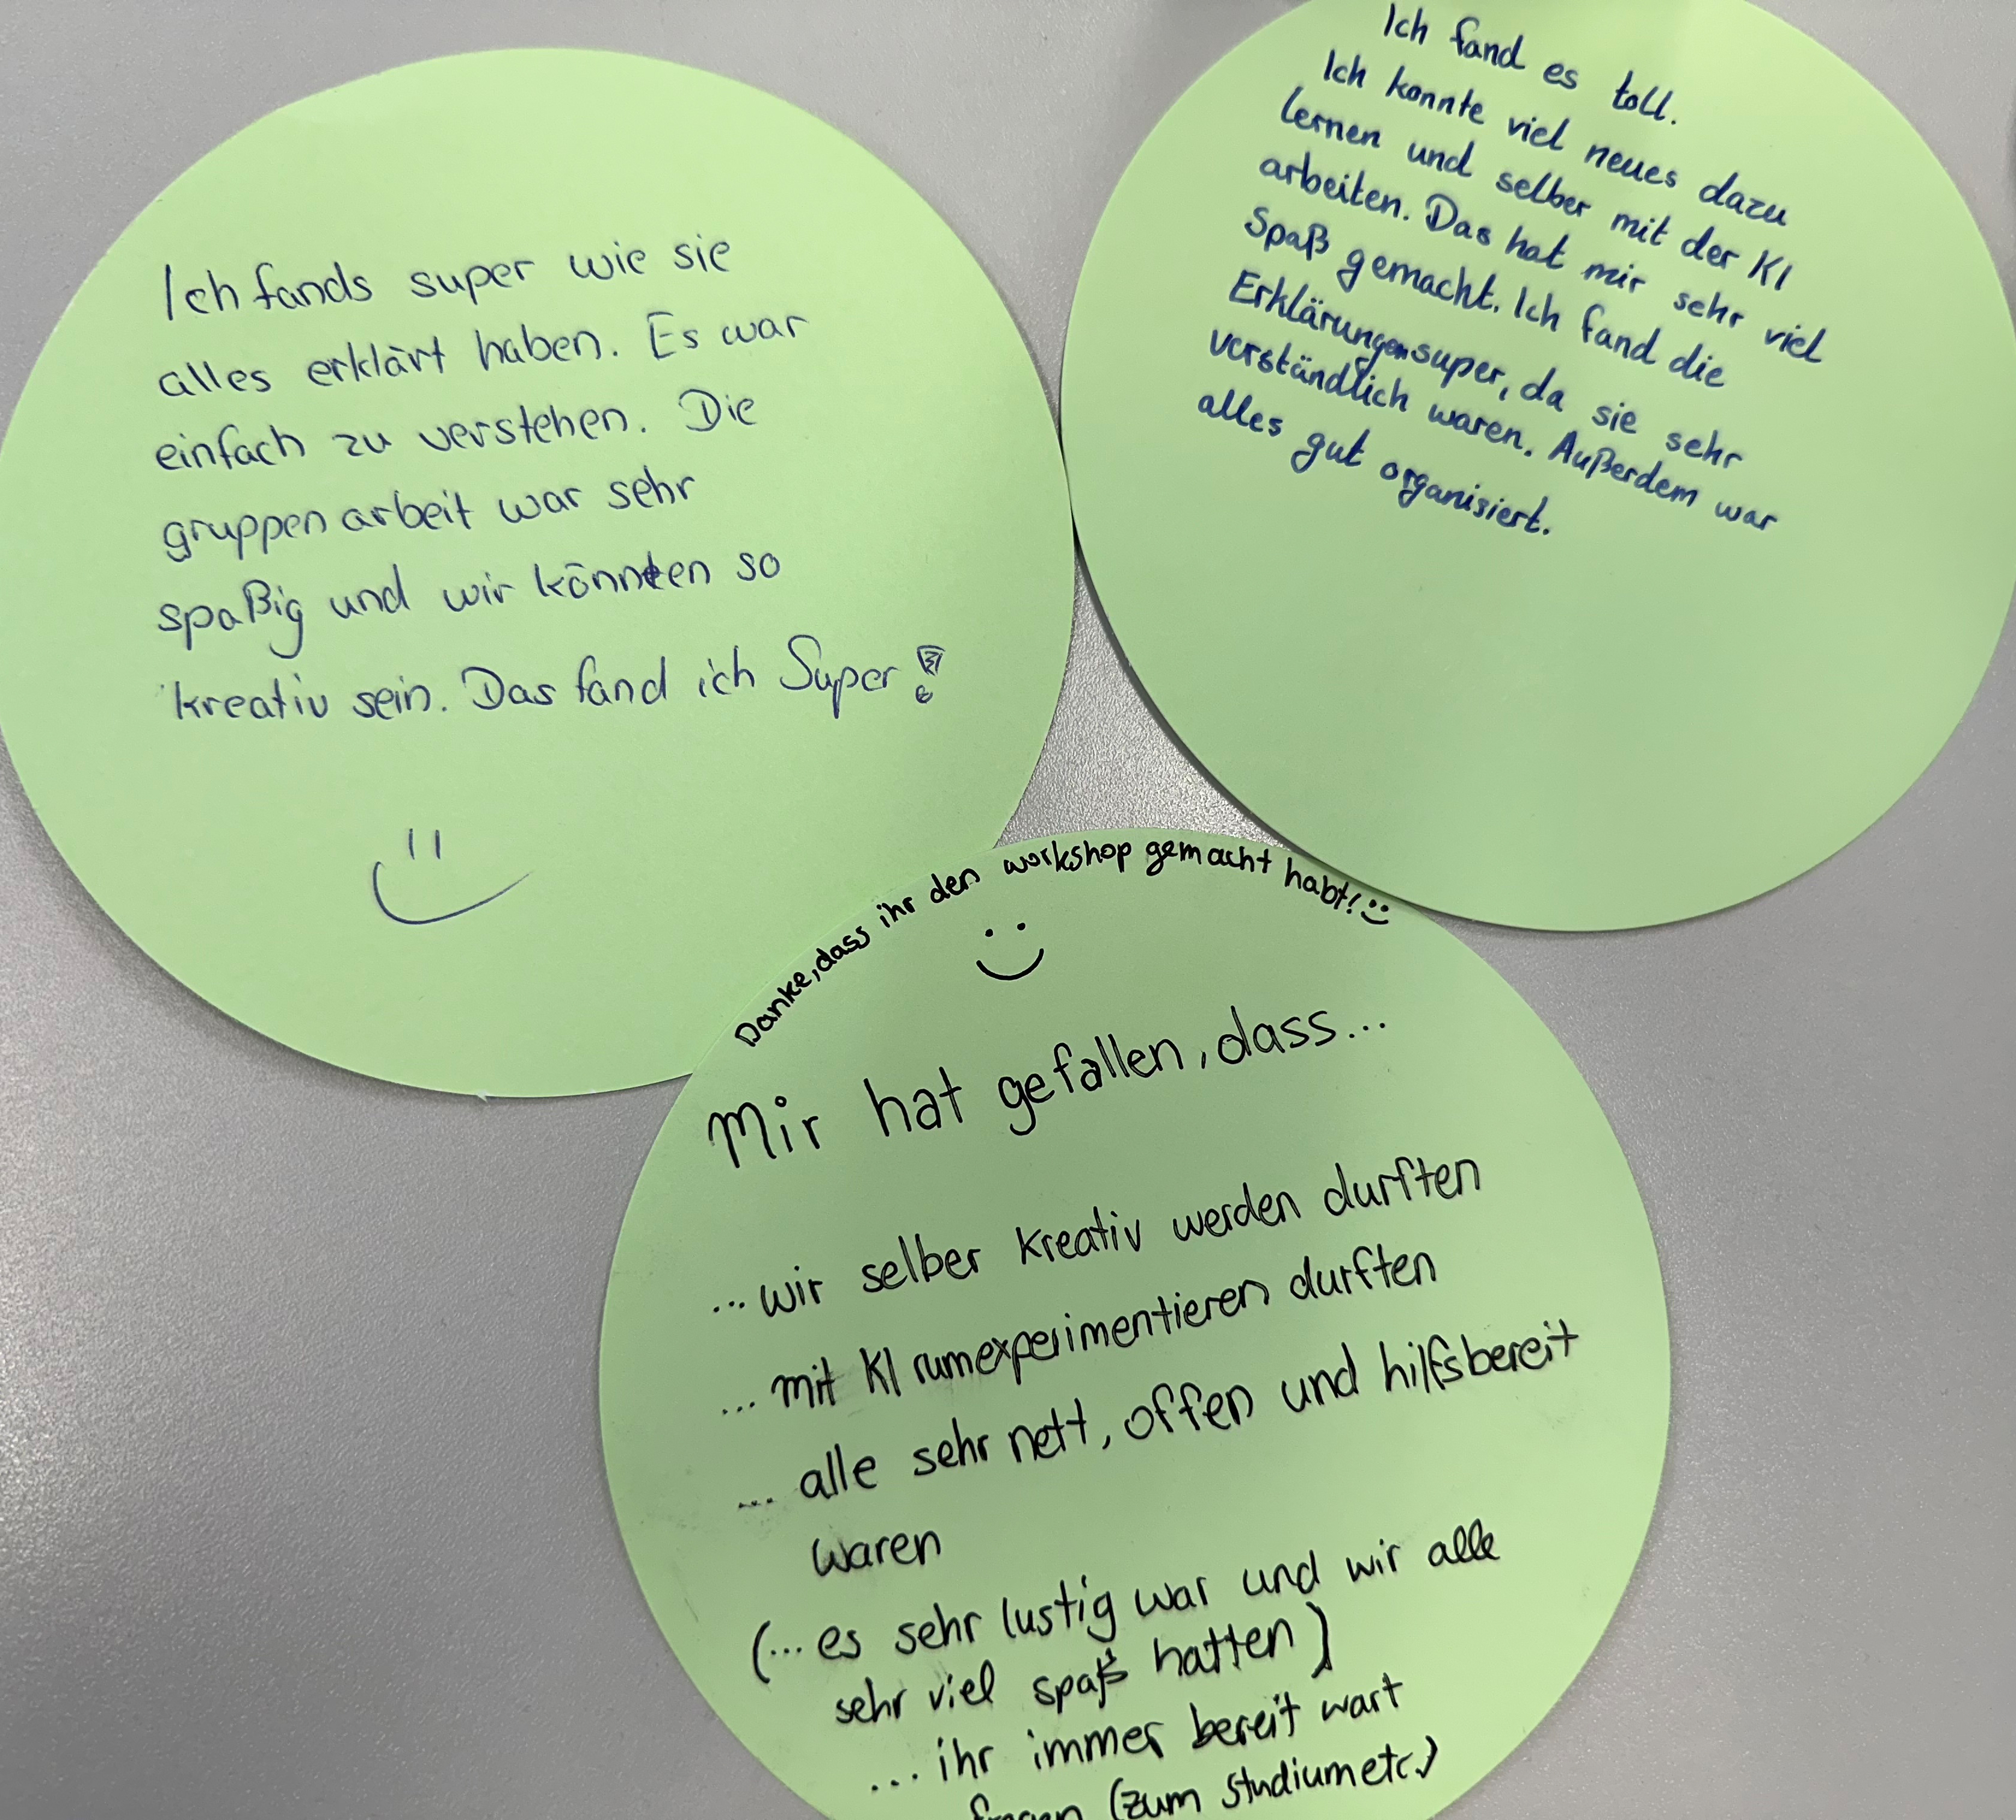 Ich fands super wie sie
alles erklärt haben. Es war
einfach zu verstehen. Die
gruppenarbeit war sehr
spaßig und wir könnten so
kreativ sein. Das fand ich Super!
Ich fand es toll.
Ich konnte viel neues dazu
lernen und selber mit der KI
arbeiten. Das hat mir sehr viel
Spaß gemacht. Ich fand die
Erklärungen super, da sie sehr
verständlich waren. Außerdem war
alles gut organisiert.
Danke, dass ihr den workshop gemacht habt! :)
Mir hat gefallen, dass...
...wir selber kreativ werden durften
...mit KI rumexperimentieren durften
... alle sehr nett, offen und hilfsbereit
waren
(...es sehr lustig war und wir alle
sehr viel spaß hatten)
...ihr immer bereit wart
fragen (zum studium etc.)